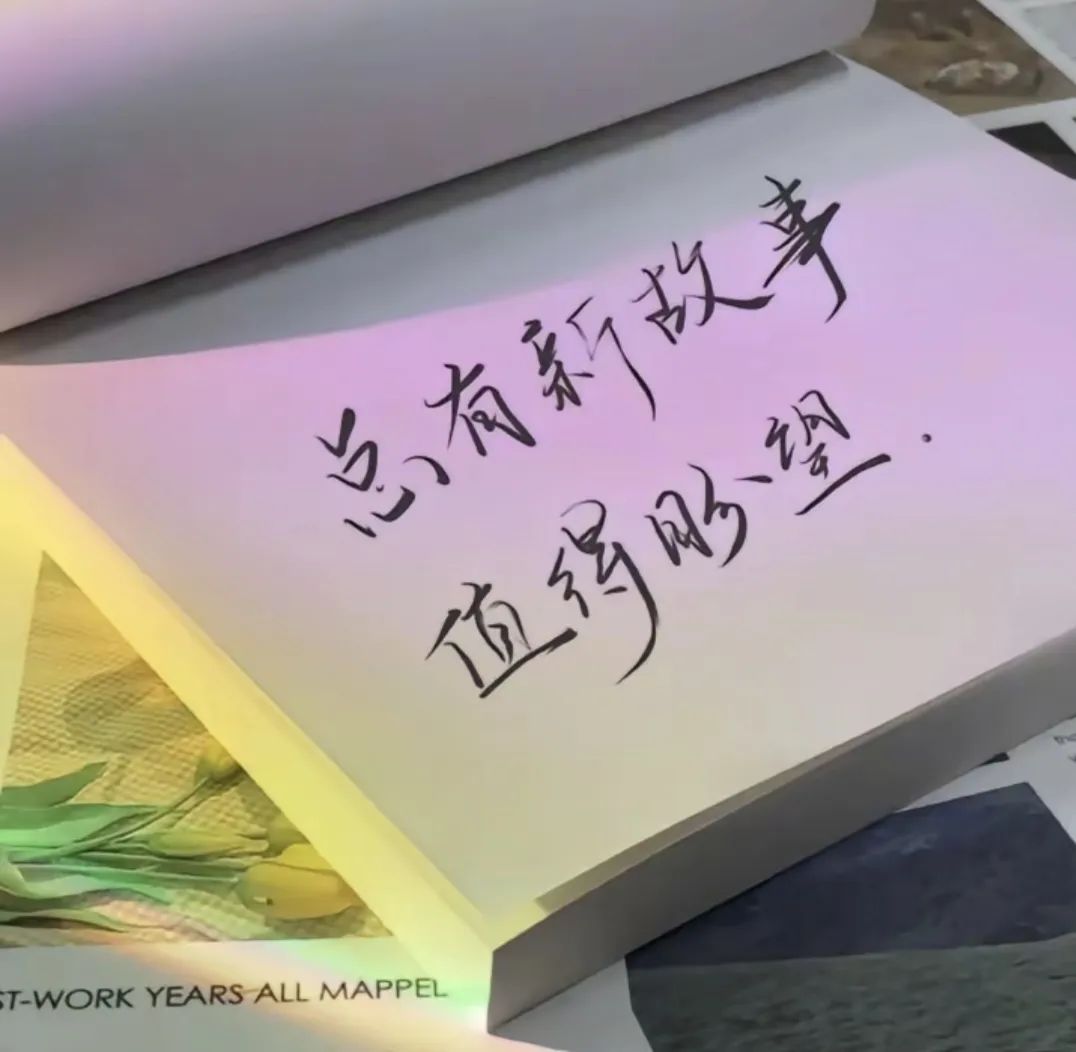 总有新故事
值得盼望.
ST-WORK YEARS ALL MAPPEL